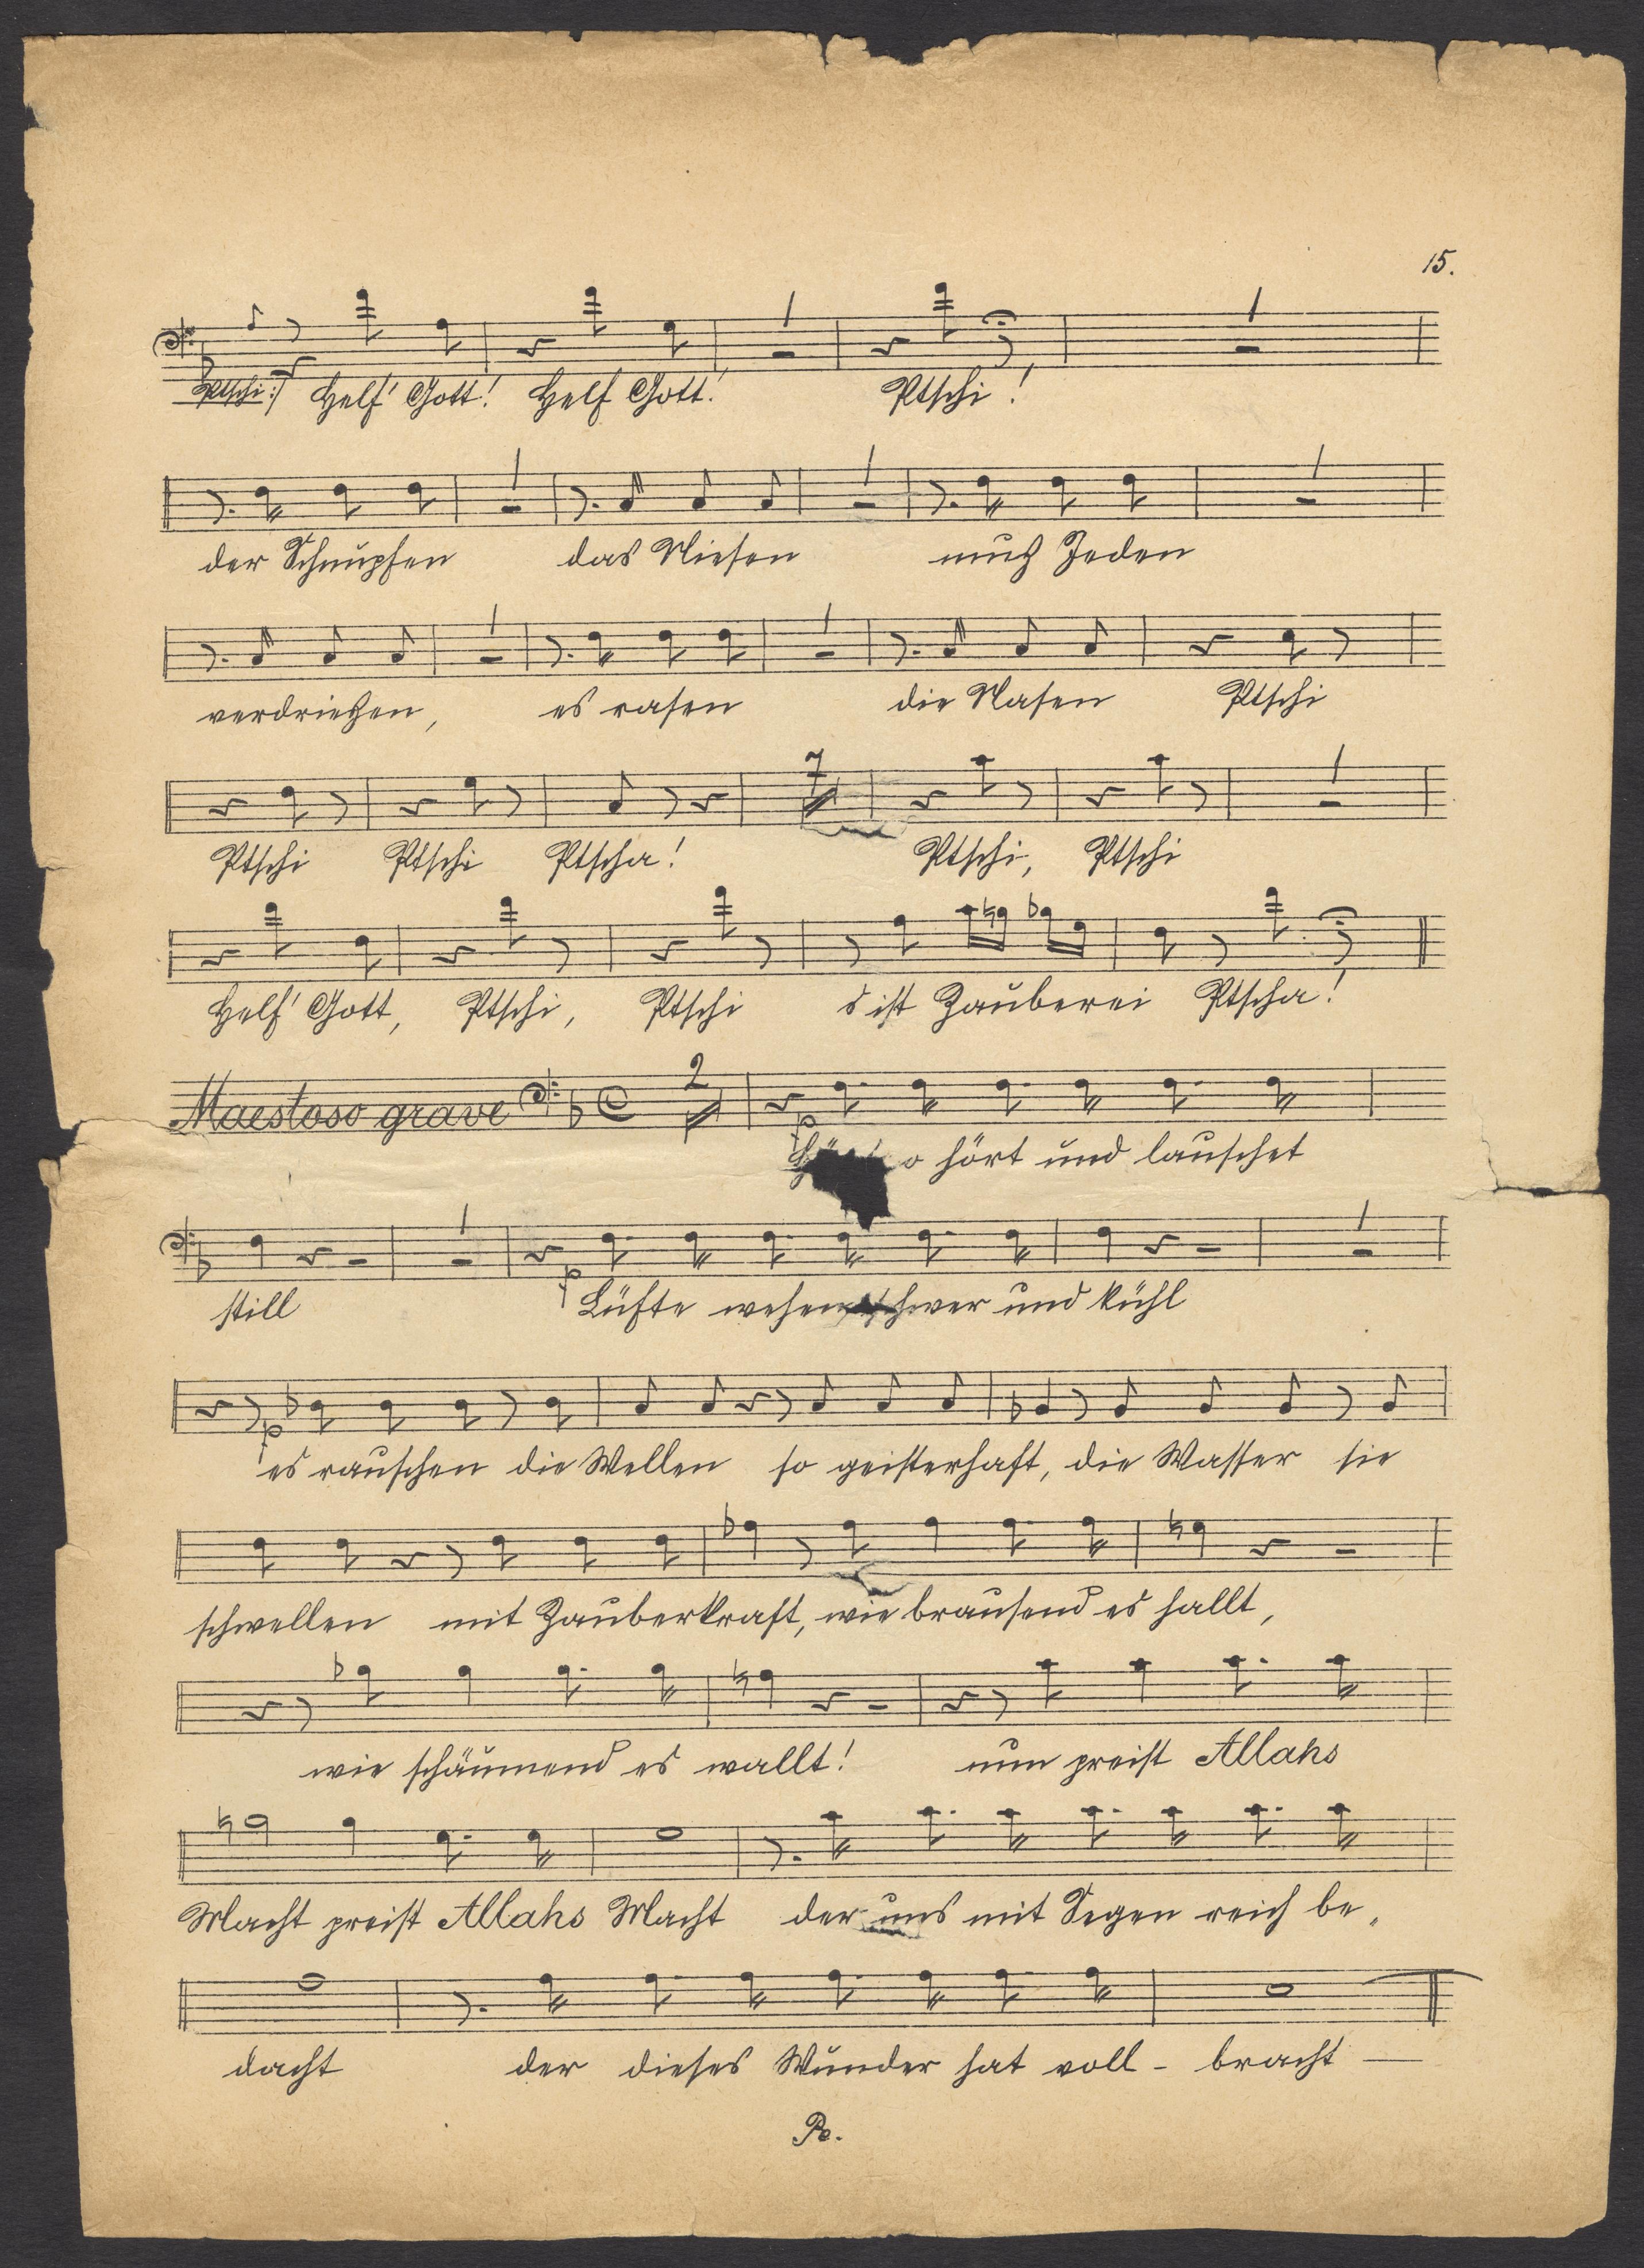 15.
Ptschi! Helf' Gott! Helf Gott! Ptschi!
der Schnupfen das Niesen muß Jeden
verdrießen, es rasen die Nasen Ptschi
7
Ptschi Ptschi Ptscha! Ptschi, Ptschi
Helf' Gott, Ptschi, Ptschi s ist Zauberei Ptscha!
Maestoso grave 2
p
o hört und lauschet
still p Lüfte wehen schwer und kühl
p es rauschen die Wellen so geisterhaft, die Wasser sie
schwellen mit Zauberkraft, wie brausend es hallt,
wie schäumend es wallt! nun preist Allahs
Macht preist Allahs Macht der uns mit Segen reich be„
dacht der dieses Wunder hat voll - bracht —